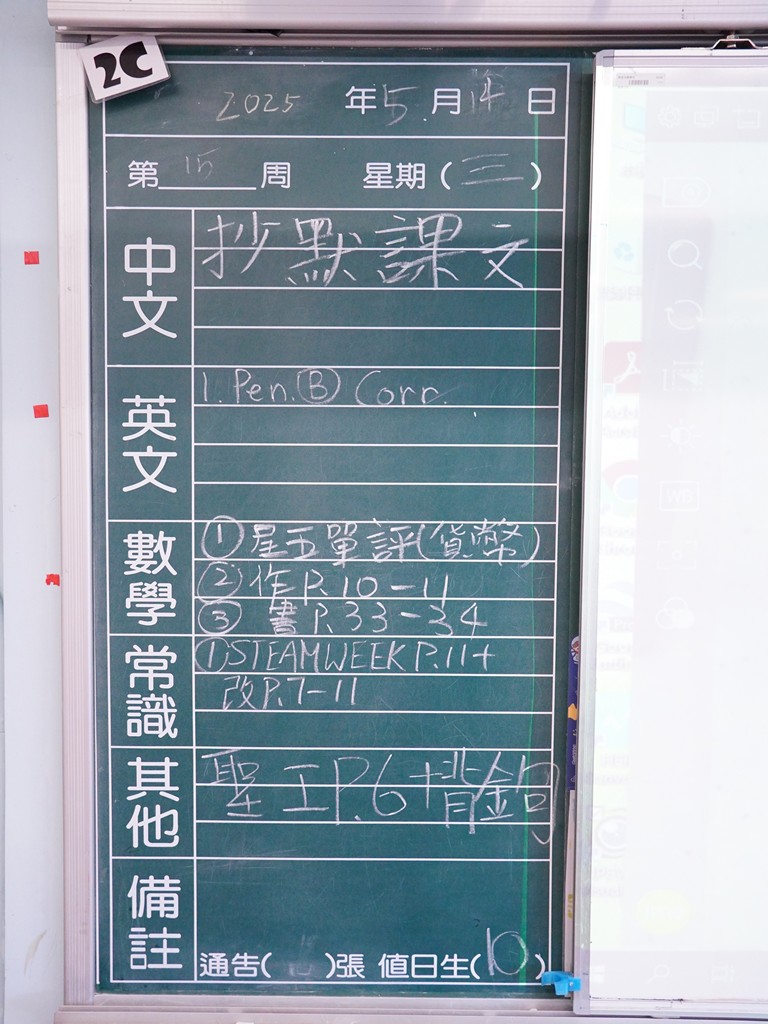 2C
2025 年 5 月 14 日
第 15 周 星期 (三)
中文
抄默課文
英文
1. Pen. Ⓑ Corr.
數學
① 星五單評(貨幣)
② 作P. 10-11
③ 書P. 33-34
常識
① STEAMWEEK P.11+
改P.7-11
其他
聖工P.6+背金句
備註
通告( )張 值日生(10)